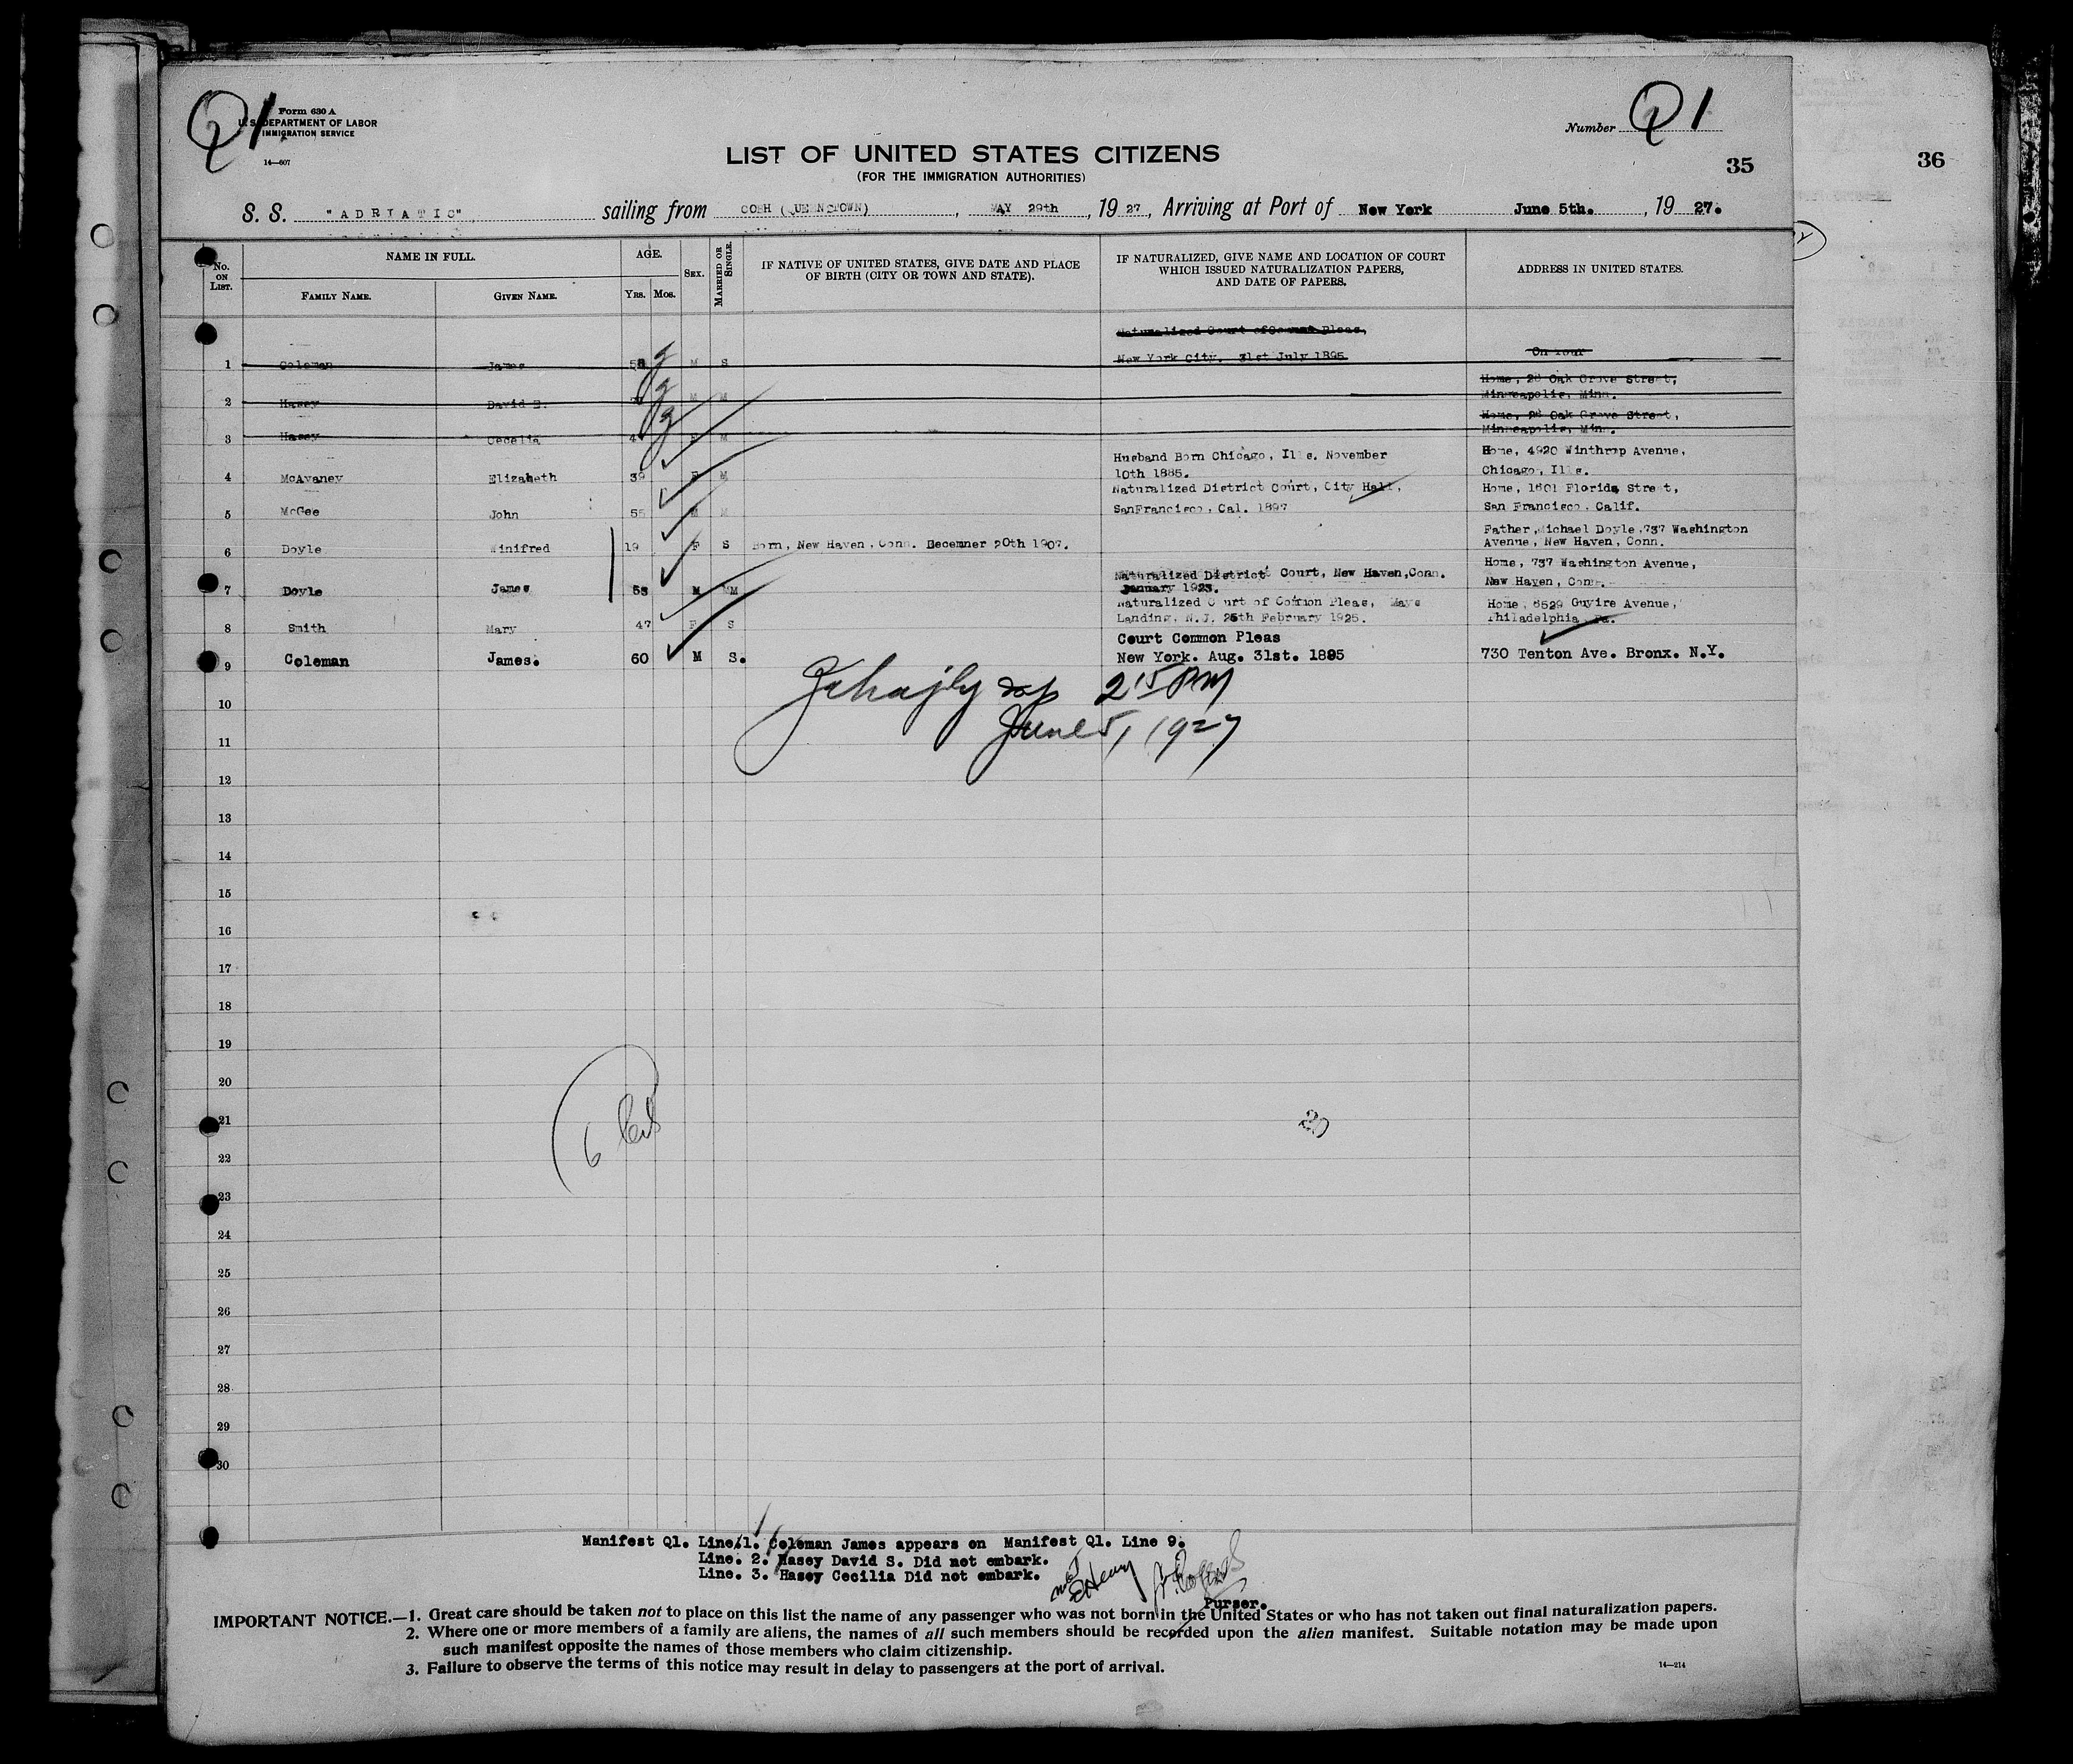 Q1
Form 630 A
U. S. DEPARTMENT OF LABOR
IMMIGRATION SERVICE
14—607
Number Q1
LIST OF UNITED STATES CITIZENS
(FOR THE IMMIGRATION AUTHORITIES)
35
36
S. S. "ADRIATIC" sailing from COBH (QUEENSTOWN), MAY 29th, 19 27, Arriving at Port of New York June 5th., 19 27.
No. ON LIST. NAME IN FULL. AGE. SEX. MARRIED OR SINGLE. IF NATIVE OF UNITED STATES, GIVE DATE AND PLACE OF BIRTH (CITY OR TOWN AND STATE). IF NATURALIZED, GIVE NAME AND LOCATION OF COURT WHICH ISSUED NATURALIZATION PAPERS, AND DATE OF PAPERS. ADDRESS IN UNITED STATES.
FAMILY NAME. GIVEN NAME. YRS. MOS.
Naturalized Court of Common Pleas,
1 Coleman James M S New York City. 31st July 1895 On Tour
Home, 28 Oak Grove Street,
2 Hasey David S. M M Minneapolis, Minn.
Home, 28 Oak Grove Street,
3 Hasey Cecelia F M Minneapolis, Minn.
Husband Born Chicago, Ills. November Home, 4920 Winthrop Avenue,
4 McAvaney Elizabeth 39 F M 10th 1885. Chicago, Ills.
Naturalized District Court, City Hall, Home, 1601 Florida Street,
5 McGee John 55 M M SanFrancisco, Cal. 1897 San Francisco, Calif.
Father, Michael Doyle, 737 Washington
6 Doyle Winifred 19 F S Born, New Haven, Conn. Decemner 20th 1907. Avenue, New Haven, Conn.
Naturalized District Court, New Haven, Conn. Home, 737 Washington Avenue,
7 Doyle James 53 M M January 1923. New Haven, Conn.
Naturalized Court of Common Pleas, Mays Home, 6529 Guyire Avenue,
8 Smith Mary 47 F S Landing, N.J. 25th February 1925. Philadelphia, Pa.
Court Common Pleas
9 Coleman James. 60 M S. New York. Aug. 31st. 1895 730 Tenton Ave. Bronx. N.Y.
2 15 PM
10
June 5, 1927
11
12
13
14
15
16
17
18
19
20
21
22
23
24
25
26
27
28
29
30
6
20
Manifest Q1. Line. 1. Coleman James appears on Manifest Q1. Line 9.
Line. 2. Hasey David S. Did not embark.
Line. 3. Hasey Cecilia Did not embark.
Purser.
IMPORTANT NOTICE.—1. Great care should be taken not to place on this list the name of any passenger who was not born in the United States or who has not taken out final naturalization papers.
2. Where one or more members of a family are aliens, the names of all such members should be recorded upon the alien manifest. Suitable notation may be made upon
such manifest opposite the names of those members who claim citizenship.
3. Failure to observe the terms of this notice may result in delay to passengers at the port of arrival.
14—214